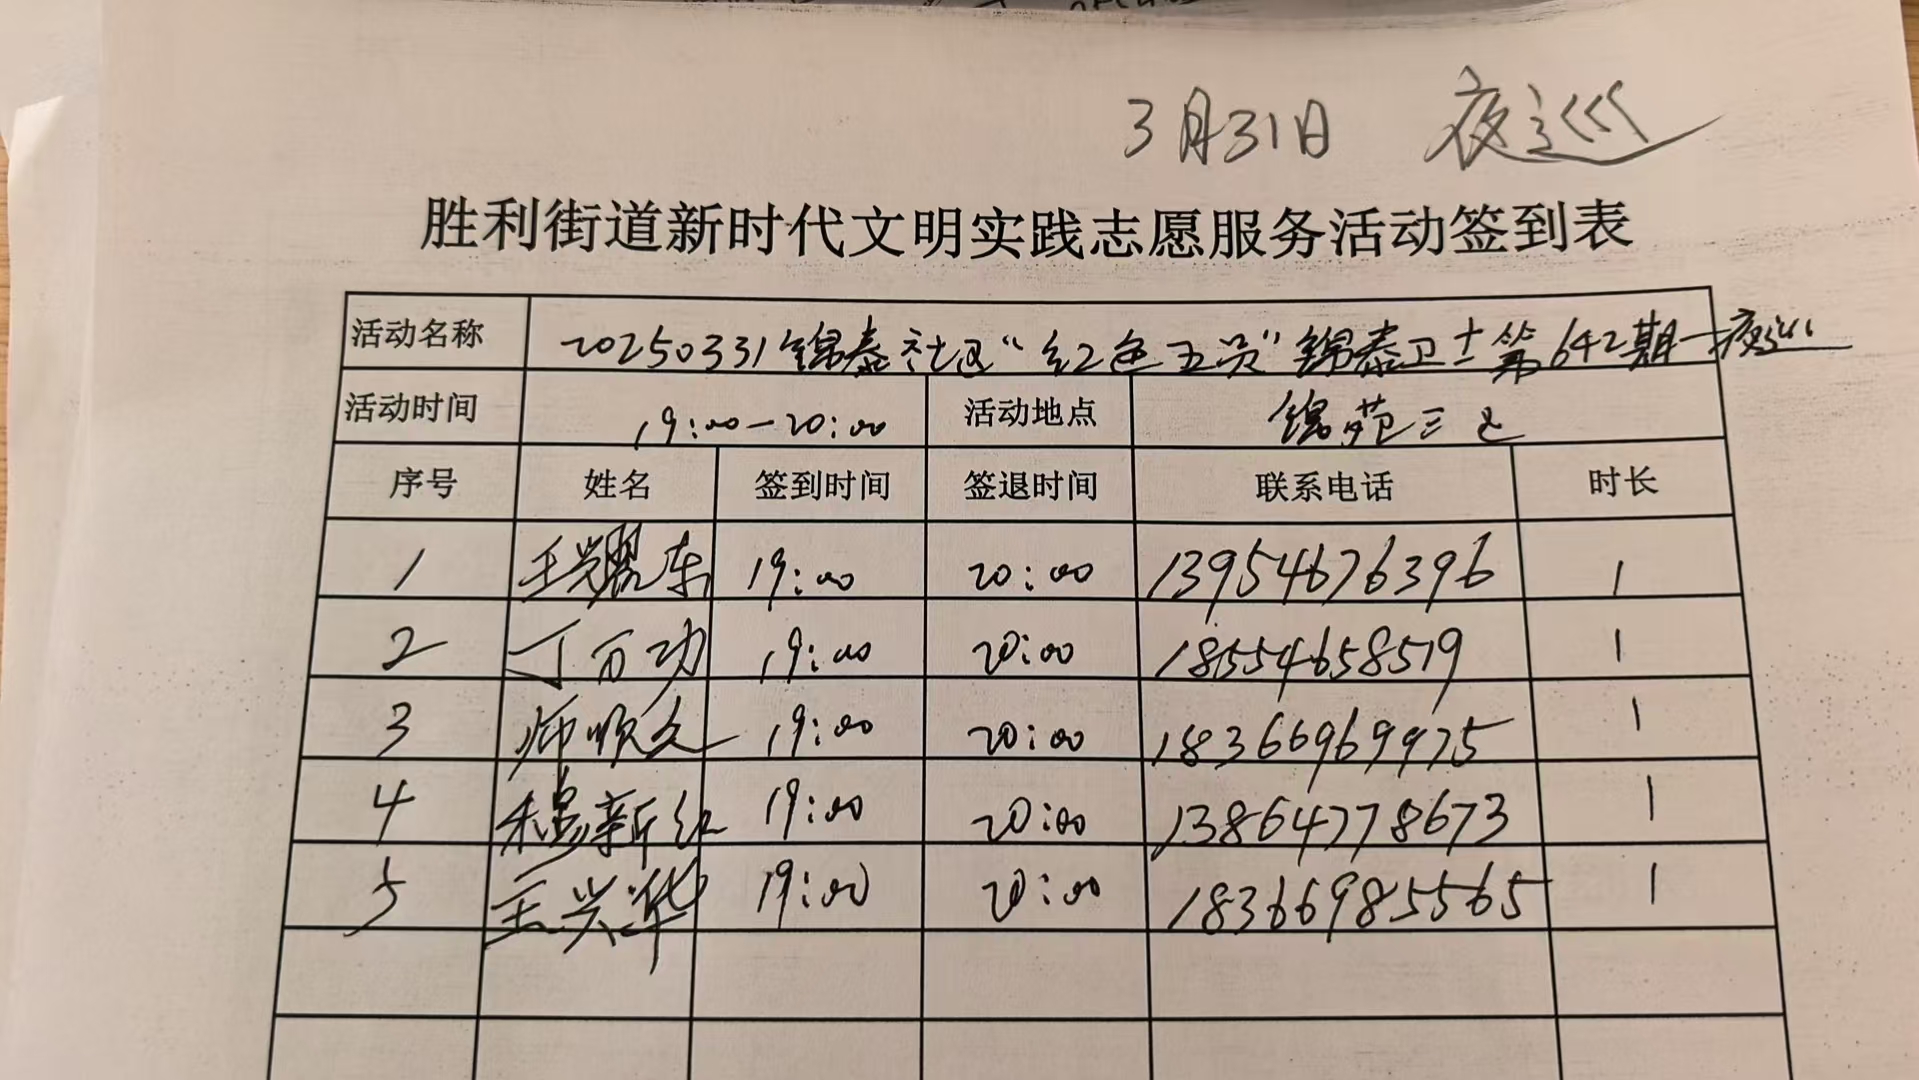 3月31日 夜巡
胜利街道新时代文明实践志愿服务活动签到表
活动名称 20250331锦泰社区“红色五员”锦泰卫士第642期—夜巡
活动时间 19:00—20:00 活动地点 锦苑三区
序号 姓名 签到时间 签退时间 联系电话 时长
1 王兴东 19:00 20:00 13954676396 1
2 丁万功 19:00 20:00 18554658519 1
3 师顺久 19:00 20:00 18366969975 1
4 穆新红 19:00 20:00 13864778673 1
5 王兴华 19:00 20:00 18366985565 1